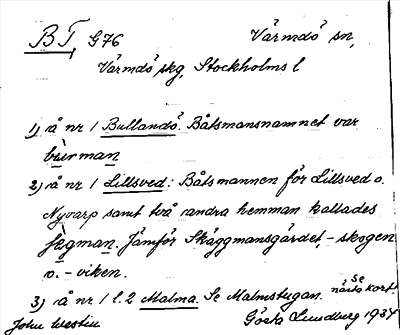 BT, G76 Värmdö sn,
Värmdö skg, Stockholms l
1) å nr 1 Bullandö. Båtsmansnamnet var
burman
2) å nr 1 Lillsved: Båtsmannen för Lillsved o.
Nyvarp samt två andra hemman kallades
fægman. Jämför Skäggmansgärdet, - skogen
o. - viken.
3) å nr 1 l. 2 Malma. Se Malmstugan. Se nästa kort
John Westin Gösta Lundberg 1934